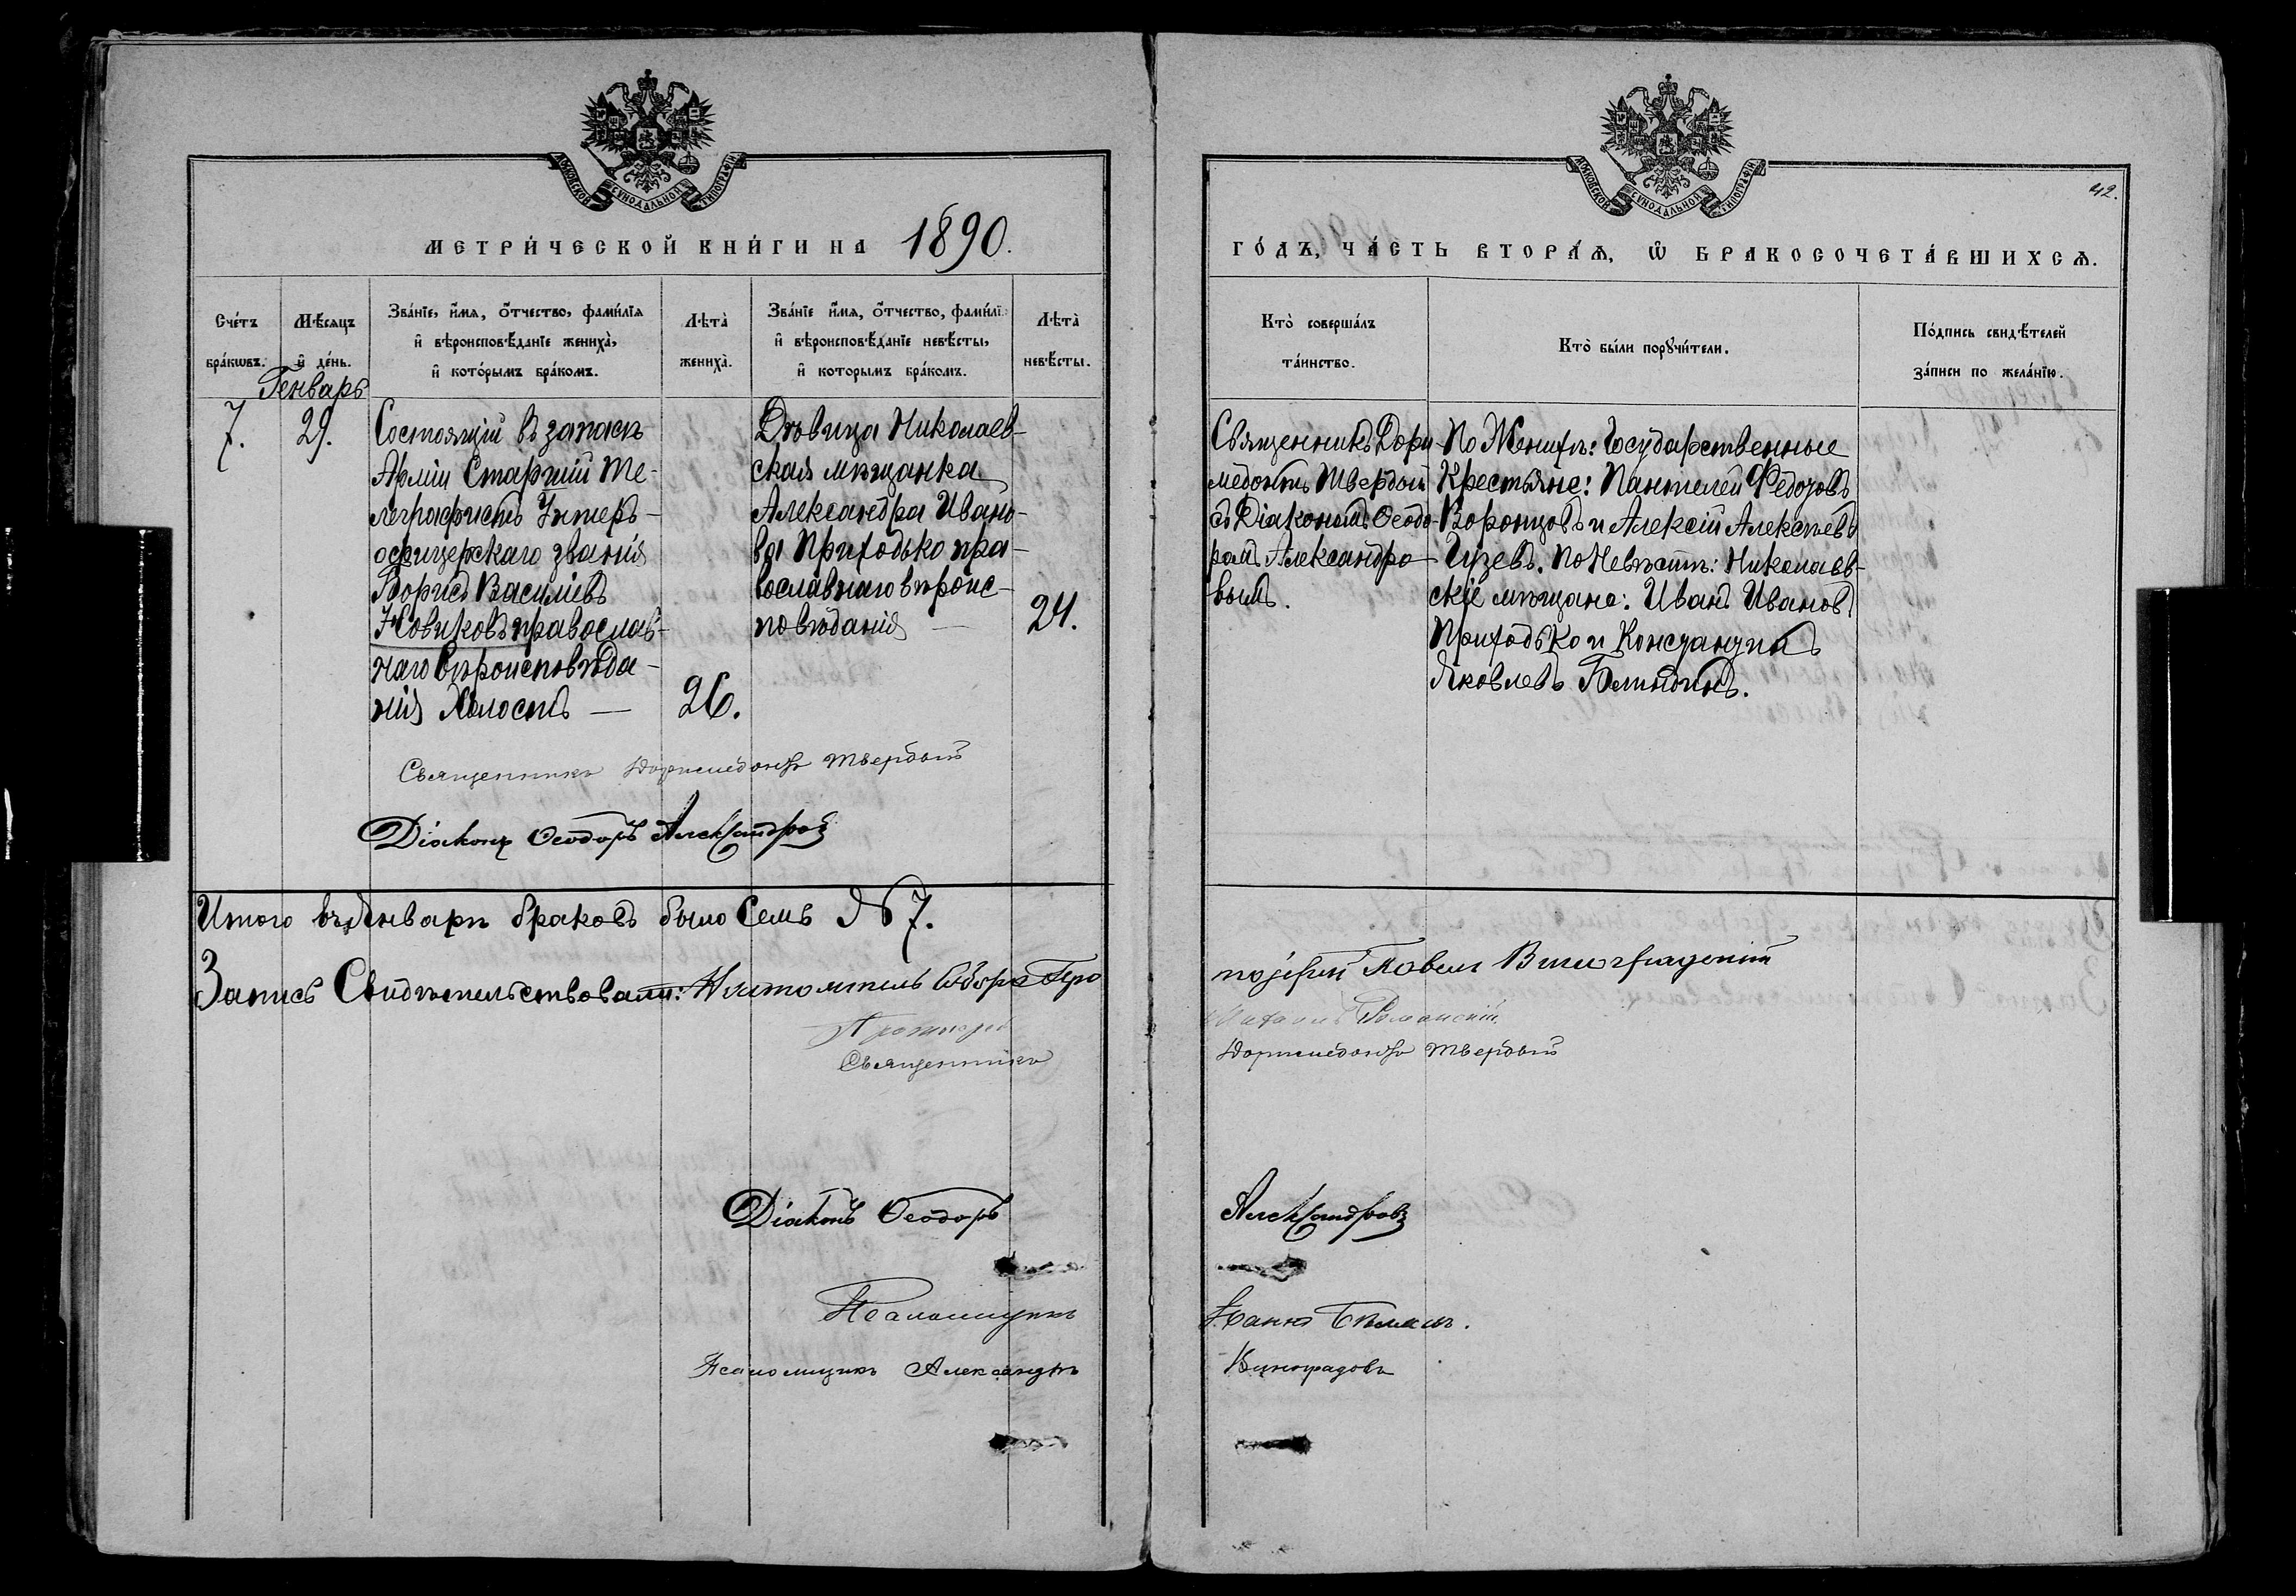 МОСКОВСКОЙ СѴНОДАЛЬНОЙ ТИПОГРАФІИ
МЕТРИ́ЧЕСКОЙ КНИ́ГИ НА 1890.
Сче́тъ бра́кѡвъ.
Мѣ́сяцъ и҆ де́нь.
Зва́нїе, и҆́мѧ, ѻ҆́тчество, фами́лїѧ
и҆ вѣроисповѣ́данїе жениха̀,
и҆ кото́рымъ бра́комъ.
Лѣта̀ жениха̀.
Зва́нїе и҆́мѧ, ѻ҆́тчество, фами́лї
и҆ вѣроисповѣ́данїе невѣ́сты,
и҆ кото́рымъ бра́комъ.
Лѣта̀ невѣ́сты.
Генварь
7.
29.
Состоящій въ запасѣ
Арміи Старшій Те-
леграфистъ Унтеръ-
офицерскаго званія
Борисъ Васильевъ
Новиковъ православ-
наго вѣроисповѣда-
нія Холостъ —
26.
Дѣвица Николаев-
ская мѣщанка
Александра Ивано-
ва Приходько пра-
вославнаго вѣроис-
повѣданія —
24.
Священникъ Дормедонтъ Твердый
Діаконъ Ѳеодоръ Александровъ
Итого въ Январѣ браковъ было Семь № 7.
Запись Свидѣтельствовали: Настоятель Собора Про
Протоіерей
Священникъ
Діаконъ Ѳеодоръ
Псаломщикъ
Псаломщикъ Александръ
МОСКОВСКОЙ СѴНОДАЛЬНОЙ ТИПОГРАФІИ
42.
ГО́ДЪ, ЧА́СТЬ ВТОРА́Ѧ, Ѡ҆ БРАКОСОЧЕТА́ВШИХСѦ.
Кто̀ соверша́лъ та́инство.
Кто̀ бы́ли порꙋчи́тели.
По́дпись свидѣ́телей за́писи по жела́нїю.
Священникъ Дор-
медонтъ Твердый
съ Діакономъ Ѳеодо-
ромъ Александро-
вымъ.
По Женихѣ: Государственные
Крестьяне: Пантелей Федоровъ
Воронцовъ и Алексій Алексѣевъ
Гузевъ. По Невѣстѣ: Николаев-
скіе мѣщане: Иванъ Ивановъ
Приходько и Константинъ
Яковлевъ
тоіерей Павелъ Виноградскій
Дормедонтъ Твердый
Александровъ
Виноградовъ